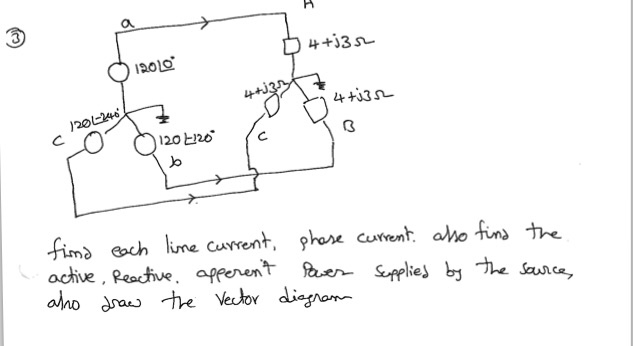 A
a
③
4+j3Ω
120∠0°
4+j3Ω
4+j3Ω
120∠-240°
c
120∠-120°
C
B
b
find each line current, phase current. also find the
active, Reactive, apperent Power Supplied by the source,
also draw the vector diagram